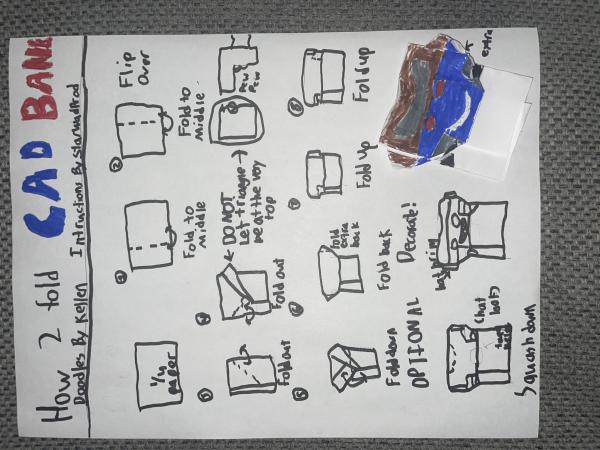 How 2 fold CAD BANE
Doodles By Kellen Intructions By
1/4 paper
Fold to
Middle
②
Fold to
Middle
Flip
Over
Fold out
← DO NOT
Let
be at the way
top
Fold out
Pew
Pew
Fold down
OPTIONAL
fold
extra
back
Fold back
Fold up
⑧
Fold up
(hat
Squash down
Decorate!
hat brim
extra